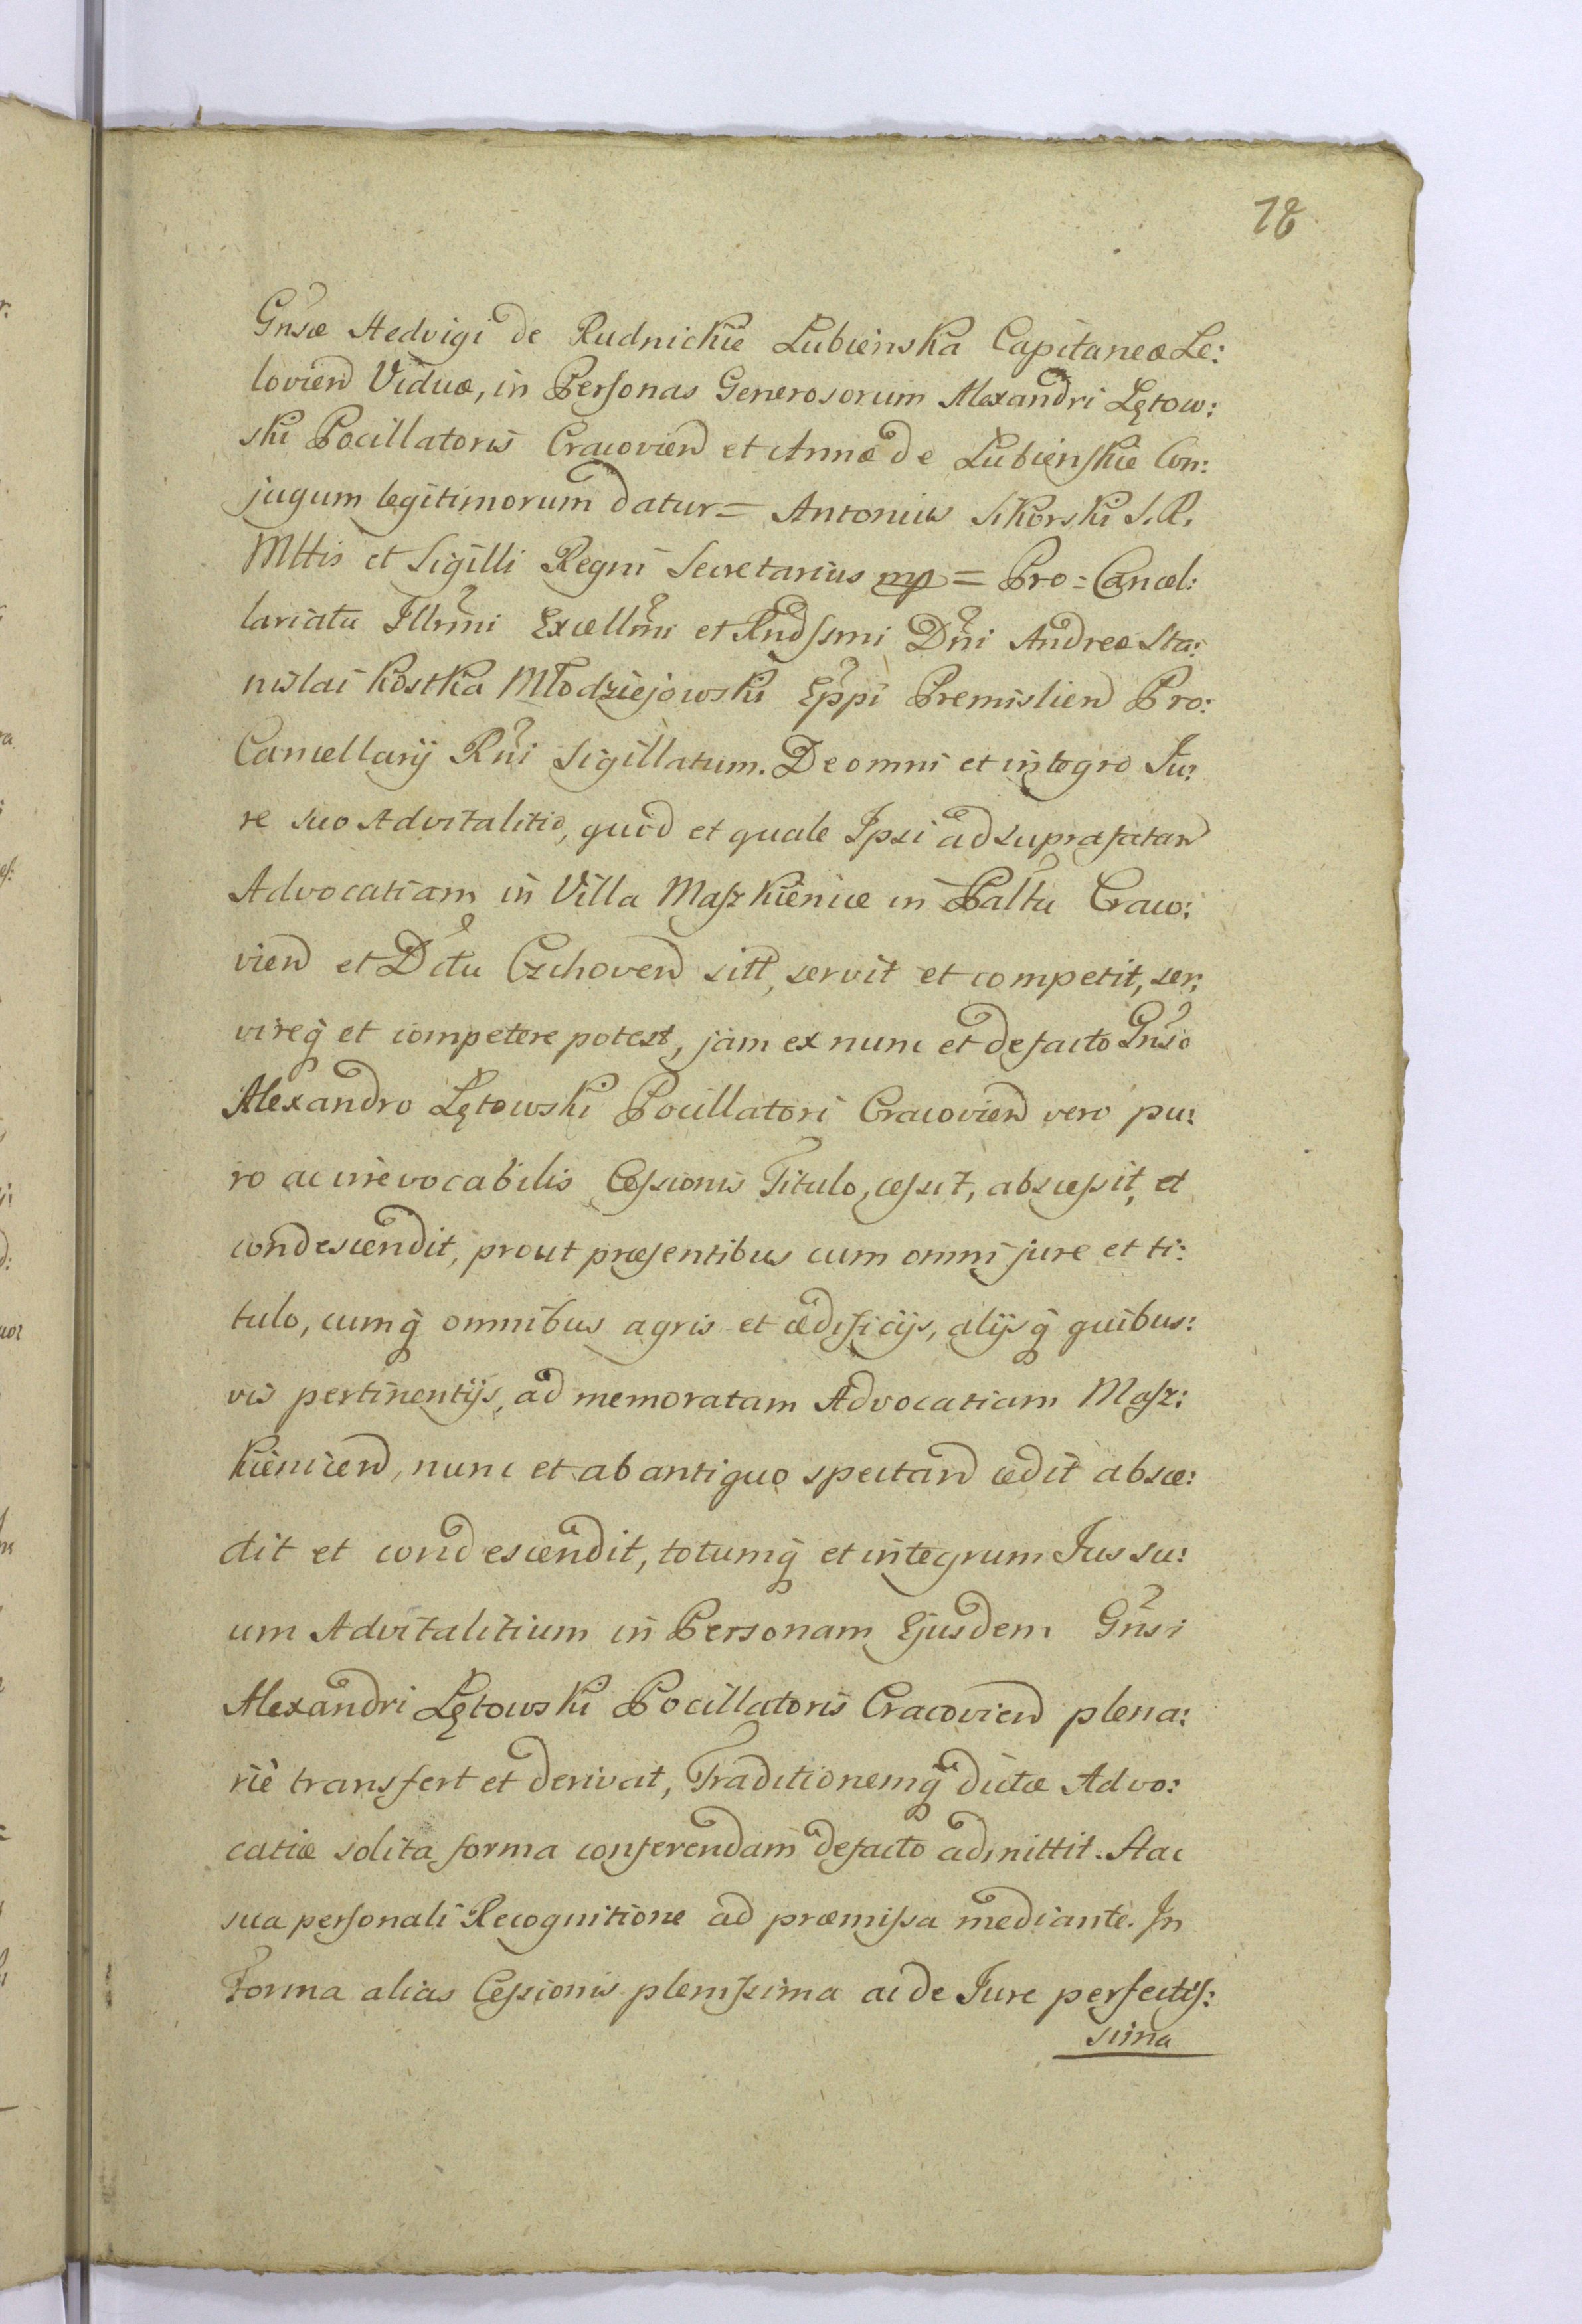 78
Gnsæ Hedvigi de Rudnickie Lubienska Capitaneæ Le:
lovien Viduæ, in Personas Generosorum Alexandri Lętow:
ski Pocillatoris Cracovien et Annæ de Lubienskie Con:
jugum legitimorum datur = Antonius Sikorski S. R.
Mttis et Sigilli Regni Secretarius mp = Pro = Cancel:
lariatu Illrmi Excellmi et Rndssmi Dni Andreæ Sta:
nislai Kostka Młodziejowski Eppi Premislien Pro:
Cancellarij Rni Sigillatum. De omni et integro Ju:
re suo Advitalitio, quod et quale Ipsi ad suprafatan
Advocatiam in Villa Maszkienice in Palttu Craco:
vien et Dctu Czchoven sitt, servit et competit, ser:
vireq et competere potest, jam ex nunc et defacto Gnso
Alexandro Lętowski Pocillatori Cracovien vero pu:
ro ac irrevocabilis Cessionis Titulo, cessit, abscessit, et
condescendit, prout præsentibus cum omni jure et ti:
tulo, cumq omnibus agris et ædificijs, alijsq quibus:
vis pertinentijs, ad memoratam Advocatiam Masz:
kienicen, nunc et ab antiquo spectan cedit absce:
dit et condescendit, totumq et integrum Jus su:
um Advitalitium in Personam Ejusdem Gnsi
Alexandri Lętowski Pocillatoris Cracovien plena:
riè transfert et derivat, Traditionemq dictæ Advo:
catiæ solita forma conferendam defacto admittit. Hac
sua personali Recognitione ad præmissa mediante. In
Forma alias Cessionis plenissima ac de Jure perfectis:
sima